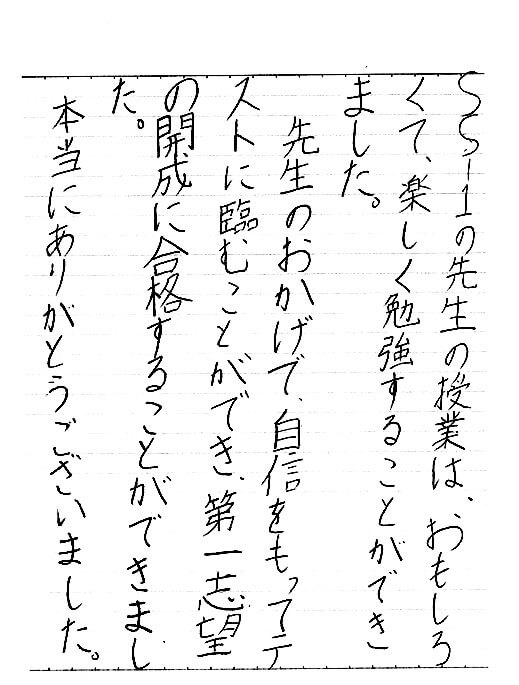 SS-1の先生の授業は、おもしろ
くて、楽しく勉強することができ
ました。
先生のおかげで、自信をもってテ
ストに臨むことができ、第一志望
の開成に合格することができまし
た。
本当にありがとうございました。